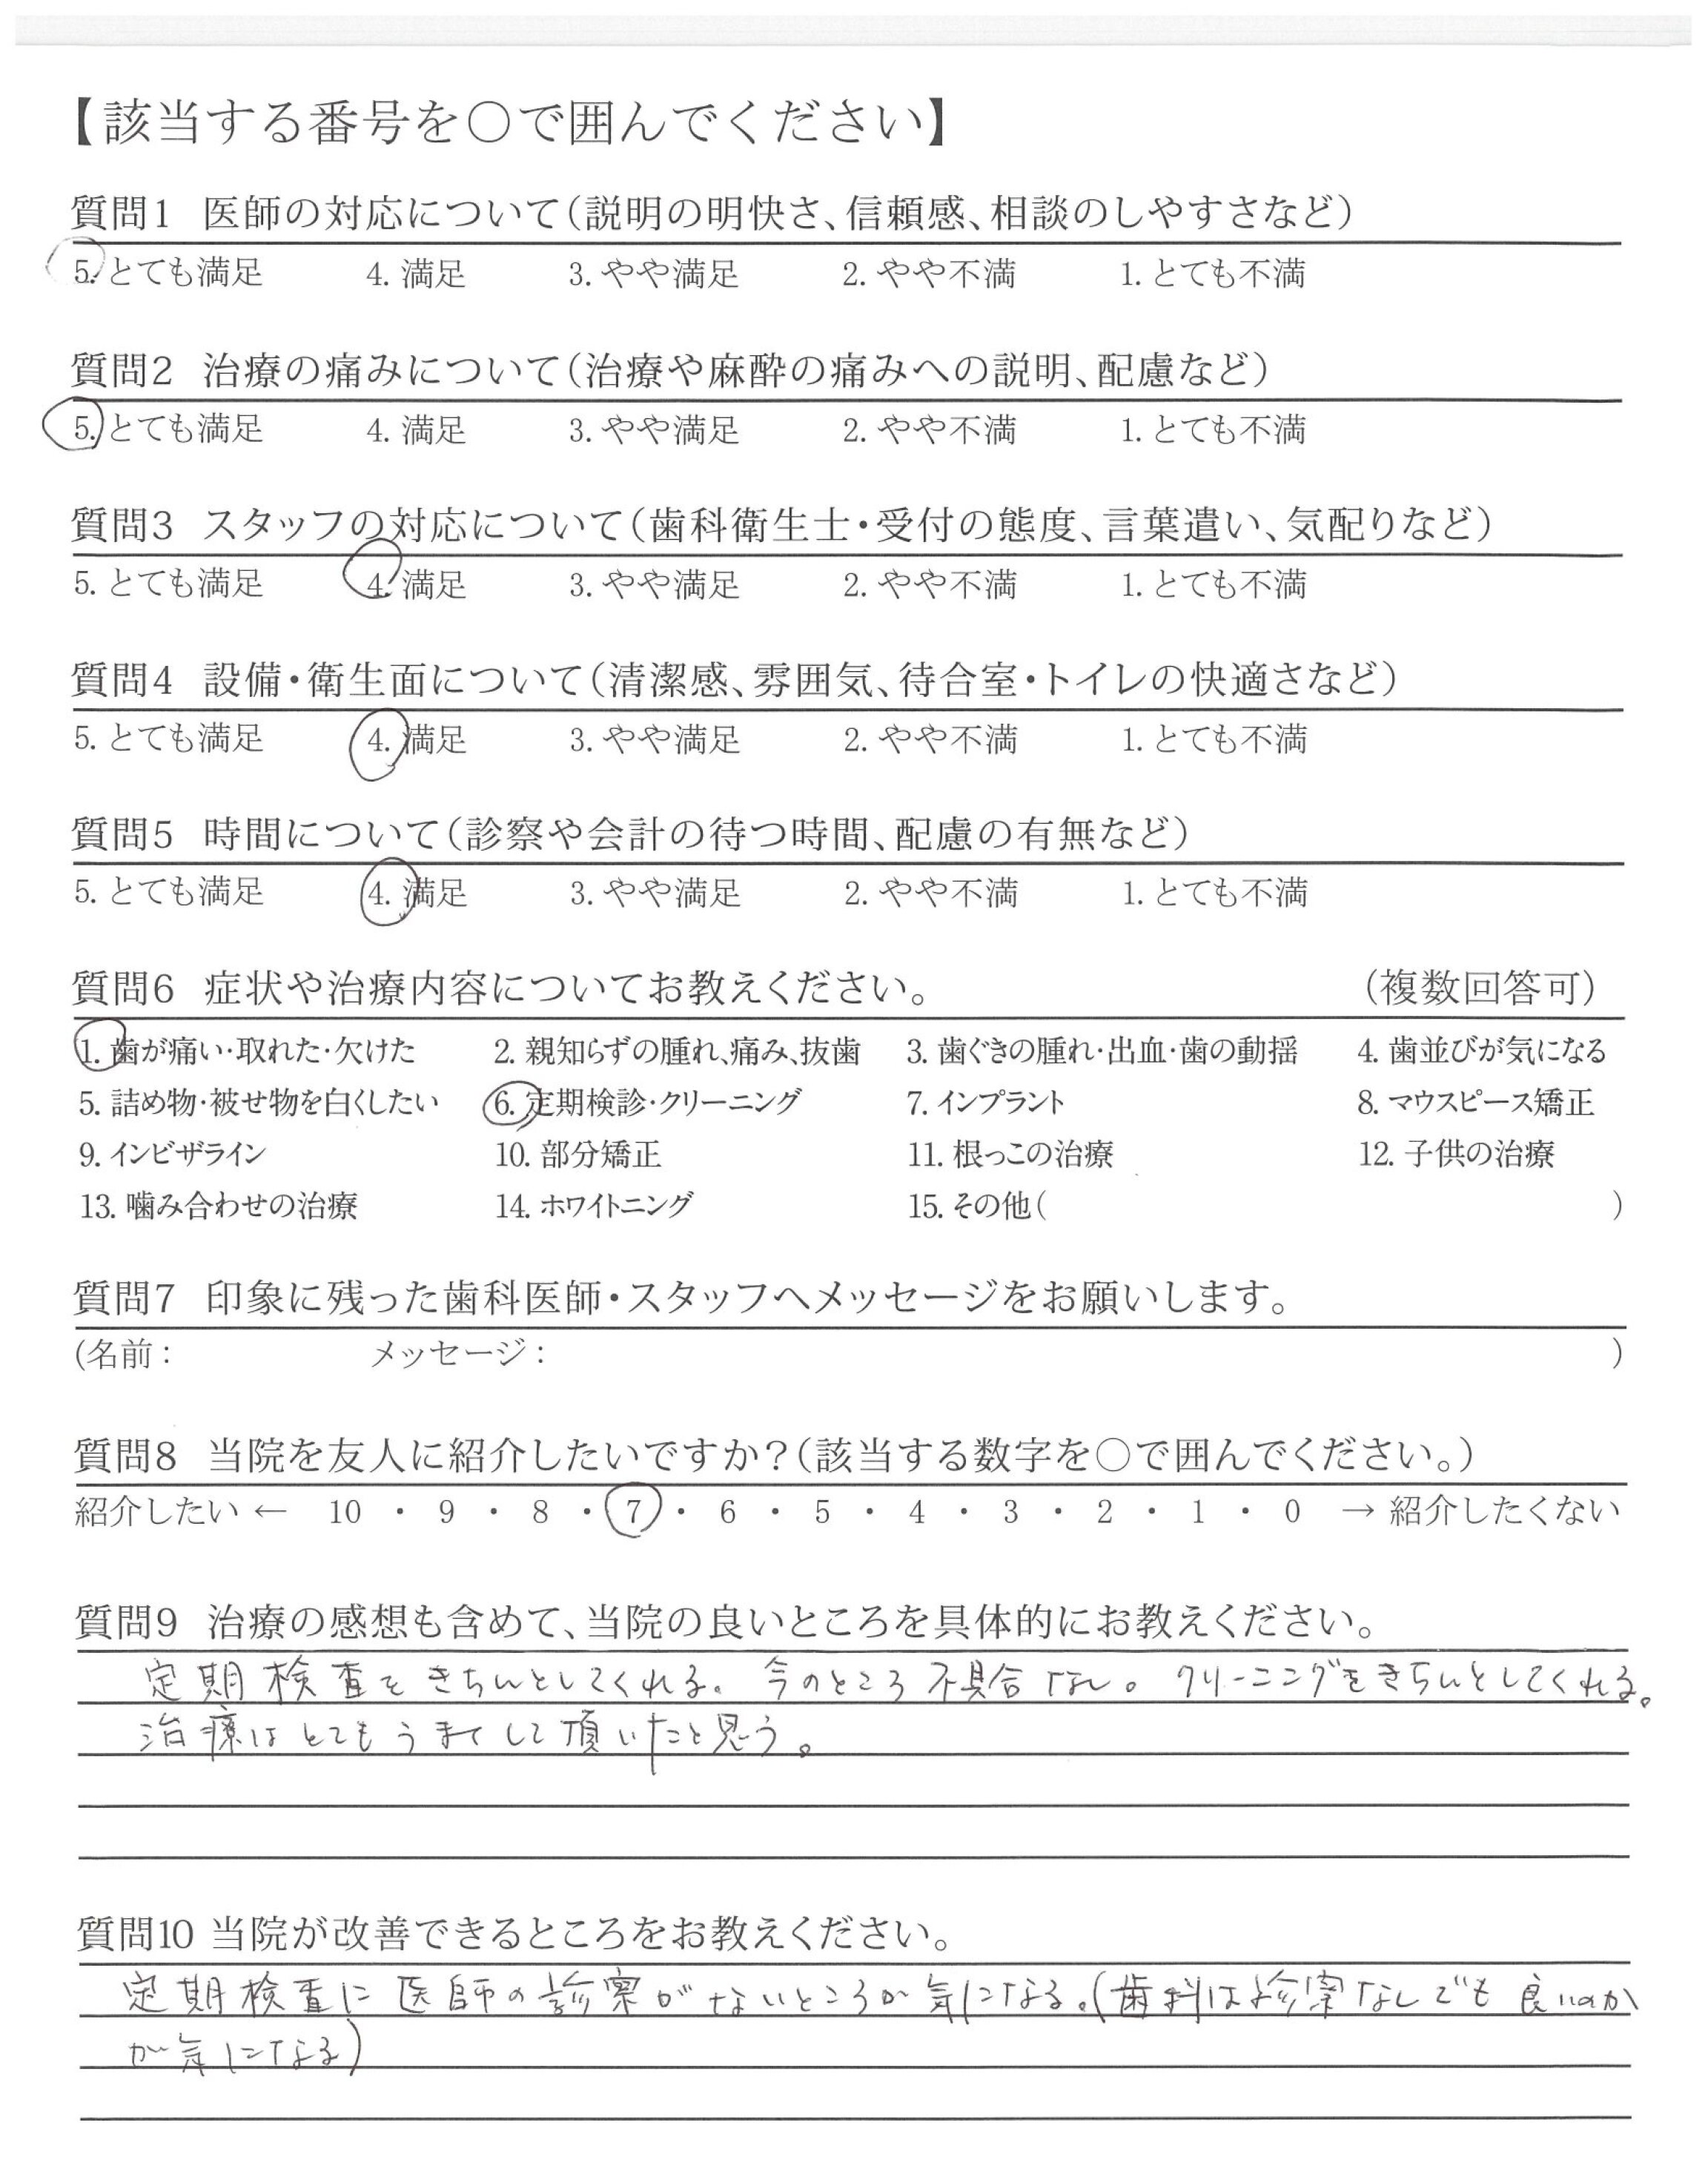 【該当する番号を○で囲んでください】
質問1 医師の対応について(説明の明快さ、信頼感、相談のしやすさなど)
5. とても満足 4. 満足 3. やや満足 2. やや不満 1. とても不満
質問2 治療の痛みについて(治療や麻酔の痛みへの説明、配慮など)
5. とても満足 4. 満足 3. やや満足 2. やや不満 1. とても不満
質問3 スタッフの対応について(歯科衛生士・受付の態度、言葉遣い、気配りなど)
5. とても満足 4. 満足 3. やや満足 2. やや不満 1. とても不満
質問4 設備・衛生面について(清潔感、雰囲気、待合室・トイレの快適さなど)
5. とても満足 4. 満足 3. やや満足 2. やや不満 1. とても不満
質問5 時間について(診察や会計の待つ時間、配慮の有無など)
5. とても満足 4. 満足 3. やや満足 2. やや不満 1. とても不満
質問6 症状や治療内容についてお教えください。 (複数回答可)
1. 歯が痛い・取れた・欠けた 2. 親知らずの腫れ、痛み、抜歯 3. 歯ぐきの腫れ・出血・歯の動揺 4. 歯並びが気になる
5. 詰め物・被せ物を白くしたい 6. 定期検診・クリーニング 7. インプラント 8. マウスピース矯正
9. インビザライン 10. 部分矯正 11. 根っこの治療 12. 子供の治療
13. 噛み合わせの治療 14. ホワイトニング 15. その他( )
質問7 印象に残った歯科医師・スタッフへメッセージをお願いします。
(名前: メッセージ: )
質問8 当院を友人に紹介したいですか?(該当する数字を○で囲んでください。)
紹介したい ← 10 ・ 9 ・ 8 ・ 7 ・ 6 ・ 5 ・ 4 ・ 3 ・ 2 ・ 1 ・ 0 → 紹介したくない
質問9 治療の感想も含めて、当院の良いところを具体的にお教えください。
定期検査をきちんとしてくれる。今のところ不具合なし。クリーニングをきちんとしてくれる。
治療はとてもうまくして頂いたと思う。
質問10 当院が改善できるところをお教えください。
定期検査に医師の診察がないところが気になる。(歯科は診察なしでも良いのか
が気になる)